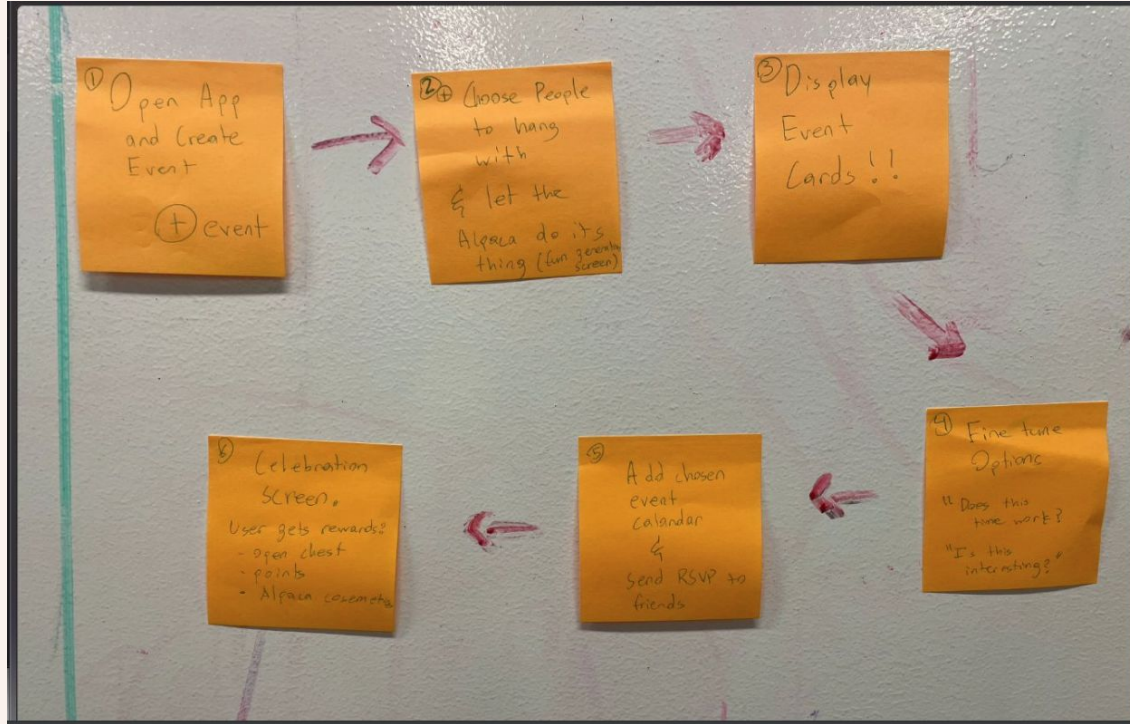 ①
Open App
and Create
Event
⊕ event
②⊕ Choose People
to hang
with
& let the
Alpaca do its
thing (fun generation
screen)
③ Display
Event
Cards!!
④ Fine tune
Options
"Does this
time work?
"Is this
interesting?"
⑤
Add chosen
event
calandar
&
Send RSVP to
friends
⑥
Celebration
screen.
User gets rewards:
- open chest
- points
- Alpaca cosemetics